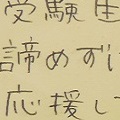 受験生
諦めずに
応援して